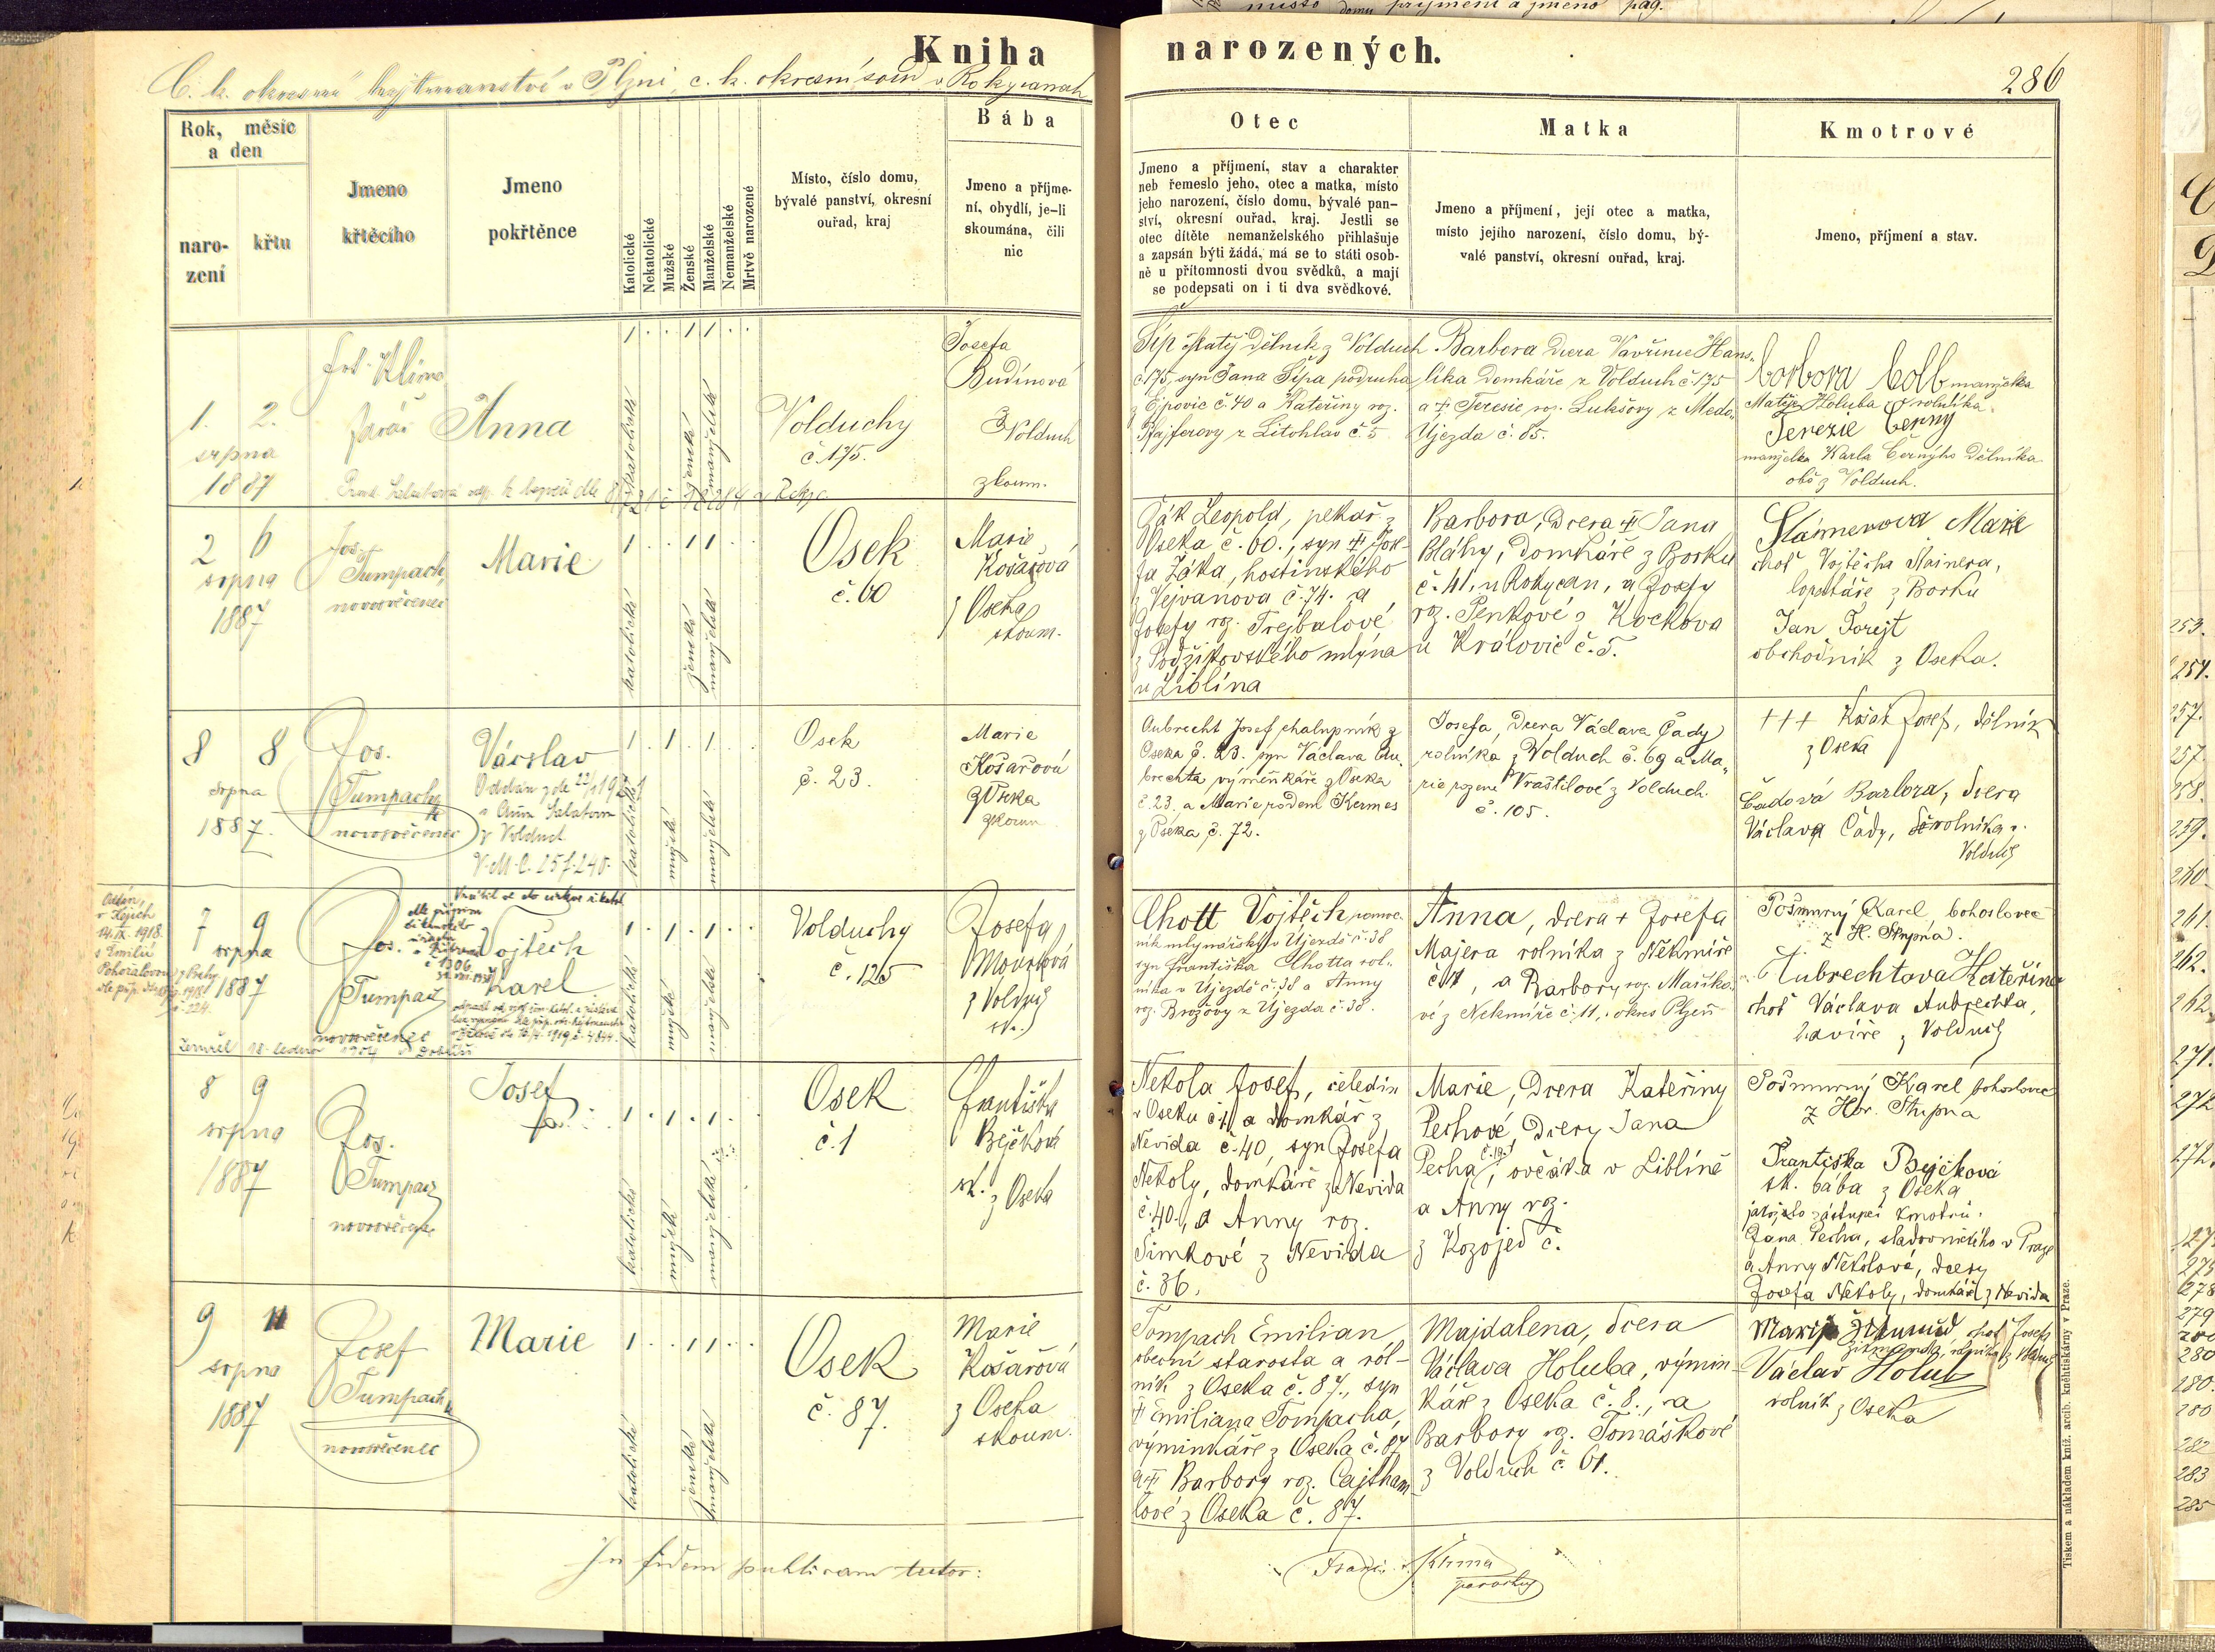 místo domu příjmení a jméno pag.
Kniha narozených.
C. k. okresní hejtmanství v Plzni, c. k. okresní soud v Rokycanech
286
Rok, měsíc
a den
naro-
zení
křtu
Jmeno
křtěcího
Jmeno
pokřtěnce
Katolické
Nekatolické
Mužské
Ženské
Manželské
Nemanželské
Mrtvě narozené
Místo, číslo domu,
bývalé panství, okresní
ouřad, kraj
Bába
Jmeno a příjme-
ní, obydlí, je-li
skoumána, čili
nic
Otec
Jmeno a příjmení, stav a charakter
neb řemeslo jeho, otec a matka, místo
jeho narození, číslo domu, bývalé pan-
ství, okresní ouřad, kraj. Jestli se
otec dítěte nemanželského přihlašuje
a zapsán býti žádá, má se to státi osob-
ně u přítomnosti dvou svědků, a mají
se podepsati on i ti dva svědkové.
Matka
Jmeno a příjmení, její otec a matka,
místo jejího narození, číslo domu, bý-
valé panství, okresní ouřad, kraj.
Kmotrové
Jmeno, příjmení a stav.
1. 2.
srpna
1887
Klima
farář
Anna
1 . . 1 1 . .
katolické
ženské
manželské
Volduchy
č. 175.
Josefa
Budínová
z Volduch
zkoum.
Šíp Matěj dělník z Volduch
č. 175, syn Jana Šípa podruha
z Ejpovic č. 40 a Kateřiny roz.
Pfajferovy z Litohlav č. 5.
Barbora dcera Vavřince Hans-
líka domkáře z Volduch č. 175
a † Teresie roz. Lukšovy z Medo-
Újezda č. 85.
manželka
Matěje Holuba rolníka.
Terezie Černy
manželka Karla Černýho dělníka
obě z Volduch.
2 6
srpna
1887
Jos.
Tumpach,
novosvěcenec
Marie
1 . . 1 1
katolické
ženské
manželské
Osek
č. 60
Marie
Košařová
z Oseka
skoum.
Žák Leopold, pekař z
Oseka č. 60., syn † Jose-
fa Žáka, hostinského
z Vejvanova č. 74. a
Josefy roz. Trejbalové
z Podžikovského mlýna
u Liblína
Barbora, dcera † Jana
Bláhy, domkáře z Borku
č. 41, u Rokycan, a Josefy
roz. Penkové z Kočkova
u Královic č. 5.
Stainerova Marie
choť Vojtěcha Stainera,
lopatáře z Borku
Jan Forejt
obchodník z Oseka.
8 8
srpna
1887.
Jos.
Tumpach
novosvěcenec
Václav
z Volduch
1 . 1 . 1 . .
katolické
mužské
manželské
Osek
č. 23.
Marie
Košařová
z Oseka
zkoum
Aubrecht Josef chalupník z
Oseka č. 23. syn Václava Au-
brechta výměnkáře z Oseka
č. 23, a Marie rodem Kermes
z Oseka č. 72.
Josefa, dcera Václava Čady
rolníka z Volduch č. 69 a Ma-
rie rozené Vraštilové z Volduch
č. 105.
+++ Košař Josef, dělník
z Oseka
Čadová Barbora, dcera
Václava Čady, rolníka z
Volduch
Oddán
v Kyjích
14. IX. 1918
s Emilií
Pohořalovou z Prahy
7 9
srpna
1887
Jos.
Tumpach
novosvěcenec
Vrátil se do církve
Vojtěch
Karel
Zemřel 18. ledna 1954
1 . 1 . 1 . .
katolické
mužské
manželské
Volduchy
č. 125
Josefa
Mourková
z Volduch
sk.
Chott Vojtěch pomoc-
ník mlynářský v Újezdě č. 38
syn Františka Chotta rol-
níka v Újezdě č. 38 a Anny
roz. Brožovy z Újezda č. 38.
Anna, dcera + Josefa
Majera rolníka z Nekmíře
č. 11, a Barbory roz. Maříko-
vé z Nekmíře č. 11, okres Plzeň
Pošmurný Karel, bohoslovec
z H. Stupna.
Aubrechtova Kateřina
choť Václava Aubrechta,
havíře z Volduch
8 9
srpna
1887
Jos.
Tumpach
novosvěcenec
Josef
1 . 1 . 1 .
katolické
mužské
manželské
Osek
č. 1
Františka
Bejčková
sk. z Oseka
Nekola Josef, čeledín
v Oseku č. 1, a domkář z
Nevida č. 40, syn Josefa
Nekoly, domkáře z Nevida
č. 40., a Anny roz.
Šimkové z Nevida
č. 36.
Marie, dcera Kateřiny
Pechové, dcery Jana
Pecha, ovčáka v Liblíně
a Anny roz.
z Kozojed č.
Pošmurný Karel bohoslovec
z Hor. Stupna
Františka Bejčková
sk. bába z Oseka
jakožto zástupci kmotrů.
Jana Pecha, sladovnického v Praze
a Anny Nekolové, dcery
Josefa Nekoly, domkáře z Nevida
9 11
srpna
1887
Josef
Tumpach
novosvěcenec
Marie
1 . . 1 1 . .
katolické
ženské
manželské
Osek
č. 87.
Marie
Košařová
z Oseka
skoum.
Tompach Emilian
obecní starosta a rol-
ník z Oseka č. 87., syn
† Emiliana Tompacha,
výminkáře z Oseka č. 87
a † Barbory roz. Cajtham-
lové z Oseka č. 87.
Majdalena, dcera
Václava Holuba, výmin-
káře z Oseka č. 8., a
Barbory roz. Tomáškové
z Volduch č. 61.
Marie Žikmund, choť Josefa
Žikmunda, rolníka z
Václav Holub
rolník z Oseka
In fidem publicam testor:
Franc. Klima
Tiskem a nákladem kníž. arcib. kněhtiskárny v Praze.
253.
254.
257.
257.
258.
259.
260.
261.
262.
262.
271.
272
272.
275
278
279
280
280.
280
282
283
285